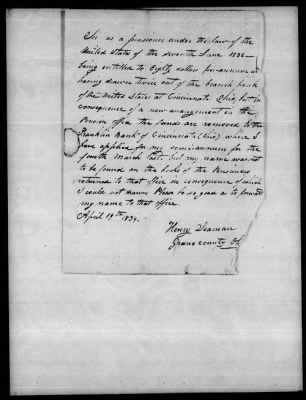 Sir as a pensioner under the law of the
United States of the seventh June 1832
being entitled to Eighty dollars per annum &
having drawn twice out of the branch bank
of the United States at Cincinnate Ohio, but in
consequence of a new arangement in the
Pension office the funds are removed to the
Franklin Bank of Cincinnate (Ohio) where I
have applied for my semiannum for the
fourth March last. but my name was not
to be found on the books of the Pensioners
returned to that office in consequence of which
I could not drawn Please be so good as to forward
my name to that office.
April 19th 1834.
Henry Seaman
county Oh